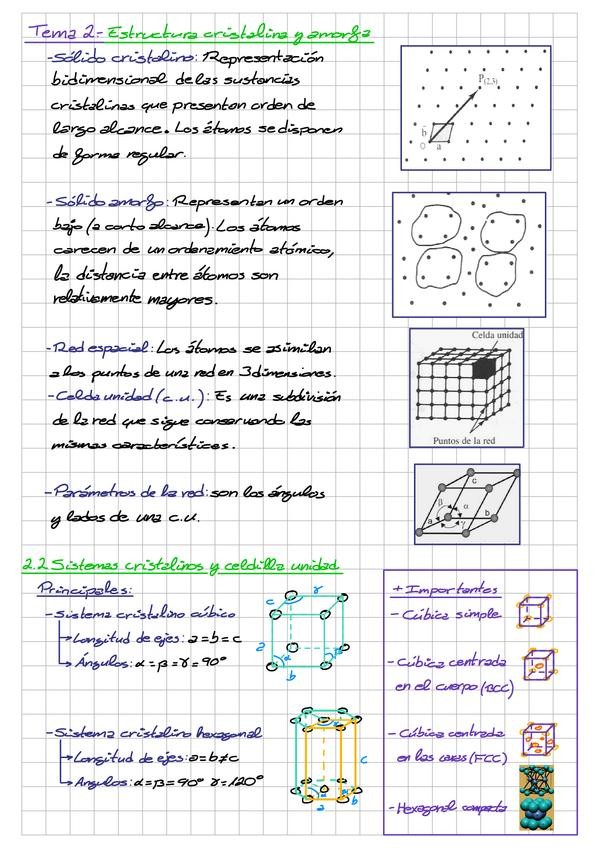 Tema 2.- Estructura cristalina y amorfa
-Sólido cristalino: Representación
bidimensional de las sustancias
cristalinas que presentan orden de
largo alcance. Los átomos se disponen
de forma regular.
P(2,3)
b
O
a
-Sólido amorfo: Representan un orden
bajo (a corto alcance). Los átomos
carecen de un ordenamiento atómico,
la distancia entre átomos son
relativamente mayores.
-Red espacial: Los átomos se asimilan
a los puntos de una red en 3 dimensiones.
-Celda unidad (c.u.): Es una subdivisión
de la red que sigue conservando las
mismas características.
Celda unidad
Puntos de la red
-Parámetros de la red: son los ángulos
y lados de una c.u.
c
β
α
a
γ
b
2.2 Sistemas cristalinos y celdilla unidad
Principales:
-Sistema cristalino cúbico
Longitud de ejes: a=b=c
Ángulos: α=β=γ=90°
c
γ
a
α
β
b
-Sistema cristalino hexagonal
Longitud de ejes: a=b≠c
Angulos: α=β=90° γ=120°
c
a
b
+ Importantes
- Cúbica simple
- Cúbica centrada
en el cuerpo (BCC)
- Cúbica centrada
en las caras (FCC)
- Hexagonal compacta